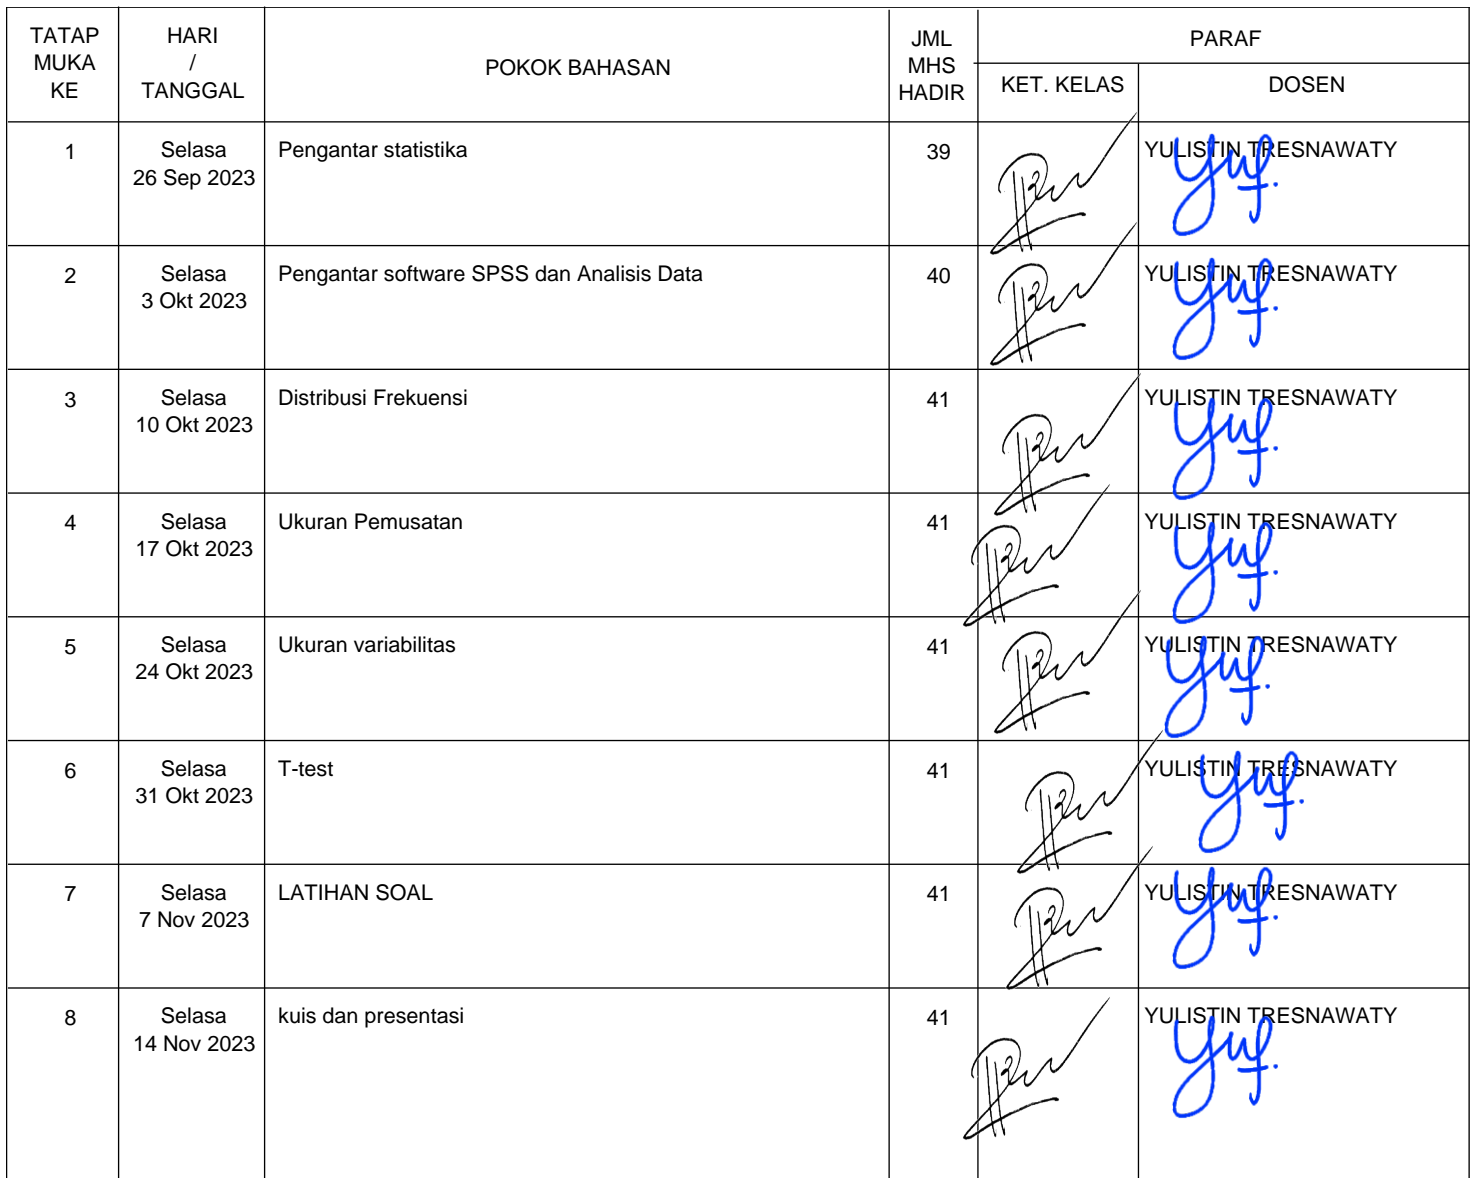 TATAP
MUKA
KE
HARI
/
TANGGAL
POKOK BAHASAN
JML
MHS
HADIR
PARAF
KET. KELAS
DOSEN
1
Selasa
26 Sep 2023
Pengantar statistika
39
YULISTIN TRESNAWATY
2
Selasa
3 Okt 2023
Pengantar software SPSS dan Analisis Data
40
YULISTIN TRESNAWATY
3
Selasa
10 Okt 2023
Distribusi Frekuensi
41
YULISTIN TRESNAWATY
4
Selasa
17 Okt 2023
Ukuran Pemusatan
41
YULISTIN TRESNAWATY
5
Selasa
24 Okt 2023
Ukuran variabilitas
41
YULISTIN TRESNAWATY
6
Selasa
31 Okt 2023
T-test
41
YULISTIN TRESNAWATY
7
Selasa
7 Nov 2023
LATIHAN SOAL
41
YULISTIN TRESNAWATY
8
Selasa
14 Nov 2023
kuis dan presentasi
41
YULISTIN TRESNAWATY